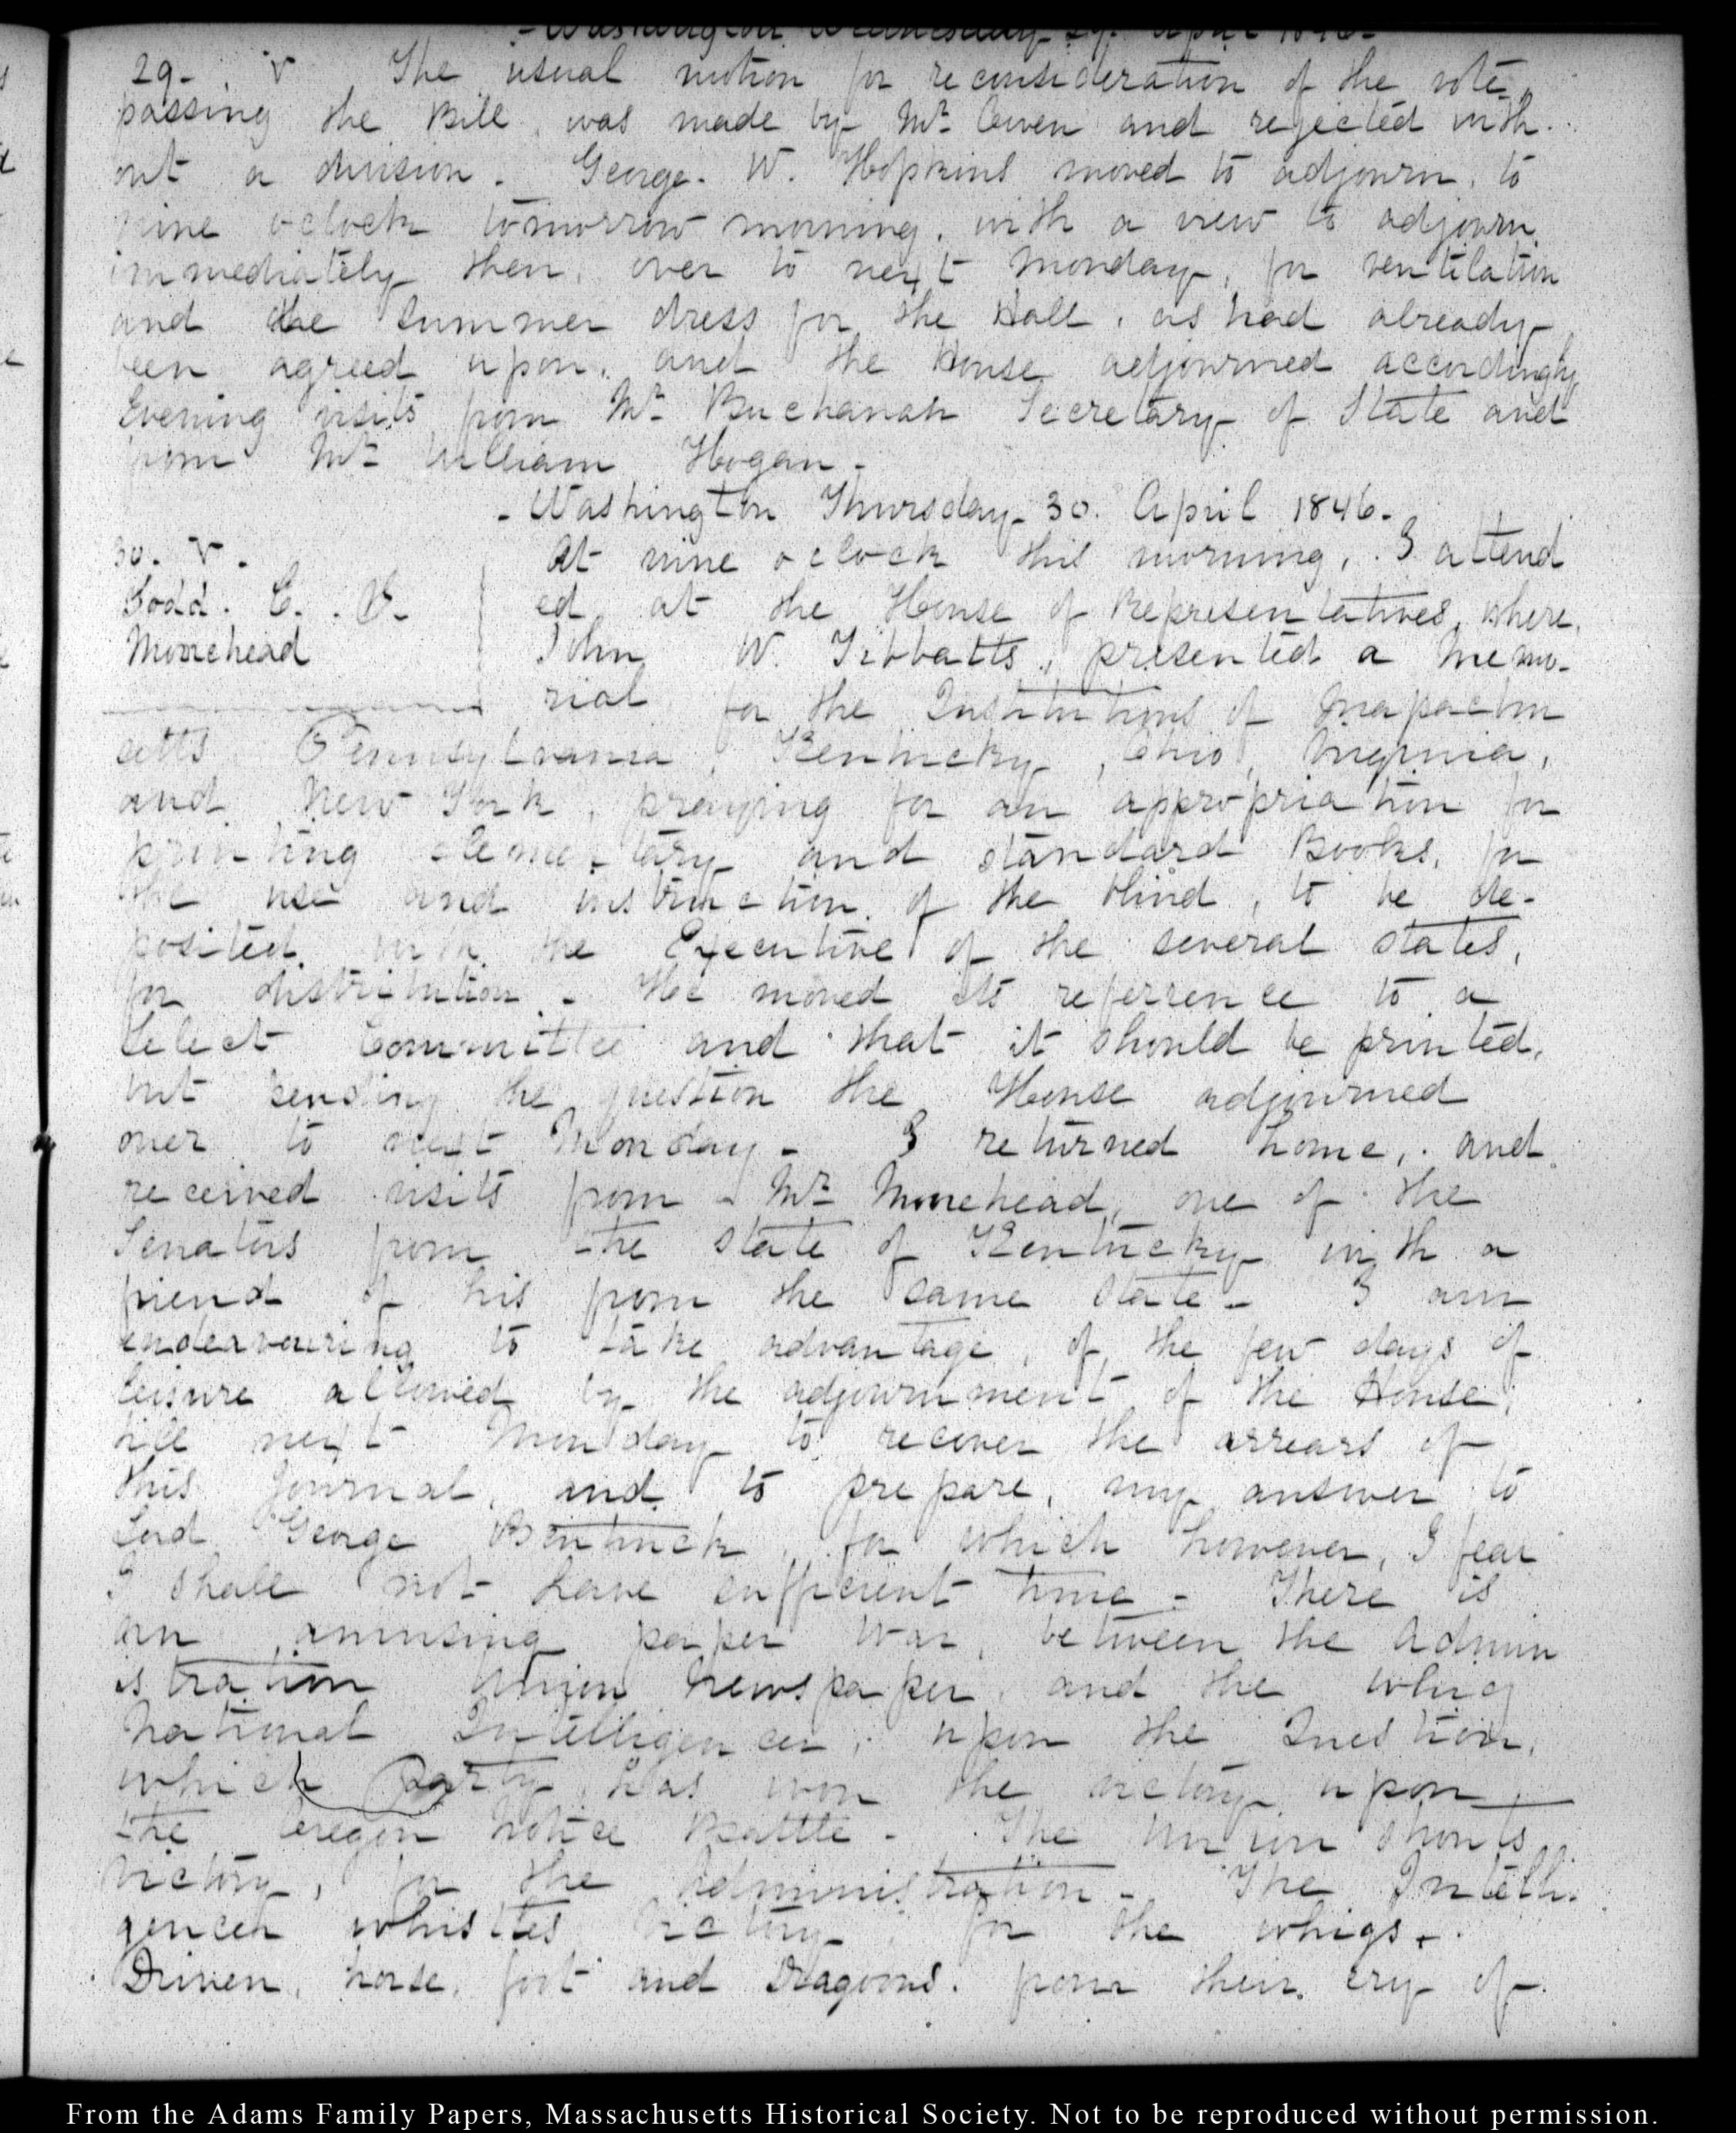 - Washington Wednesday 29. April 1846 -
29. V. The usual motion for reconsideration of the vote,
passing the Bill, was made by Mr. Owen and rejected with-
out a division. George. W. Hopkins moved to adjourn, to
nine o clock tomorrow morning, with a view to adjourn
immediately then, over to next Monday, for ventilation
and the summer dress for the Hall, as had already
been agreed upon, and the House adjourned accordingly
Evening visits from Mr. Buchanan Secretary of State and
from Mr. William Hogan -
- Washington Thursday 30. April 1846.
30. V. At nine o clock this morning, I attend
Todd. C. S. ed at the House of Representatives, where
Moorehead John W. Tibbatts, presented a Memo-
rial for the Institutions of Massachu
setts Pennsylvania, Kentucky, Ohio, Virginia,
and New York, praying for an appropriation for
printing elementary and standard Books, for
the use and instruction of the blind, to be de-
posited with the Executive of the several states,
for distribution - He moved its referrence to a
Select Committee and that it should be printed,
but pending the question the House adjourned
over to next Monday - I returned home, and
received visits from Mr. Moorehead, one of the
Senators from the State of Kentucky with a
friend of his from the same State - I am
endeavouring to take advantage, of the few days of
leisure allowed by the adjournment of the House,
till next Monday to recover the arrears of
this Journal, and to prepare, my answer to
Lord George Bentinck, for which however, I fear
I shall not have sufficient time - There is
an amusing paper War, between the Admin
istration Union Newspaper, and the Whig
National Intelligencer, upon the Question,
which Party, has won the victory upon
the Oregon Notice Battle - The Union shouts
Victory, for the Administration - The Intelli-
gencer whistles Victory for the Whigs.
Driven, horse, foot and Dragoons, from their cry of
From the Adams Family Papers, Massachusetts Historical Society. Not to be reproduced without permission.